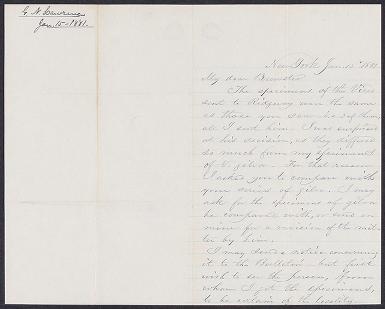 G. N. Lawrence
Jan. 15 - 1881.
New York Jan. 15th 1881
My dear Brewster
The specimens of the Vireo
sent to Ridgway were the same
as those you saw here of them,
all I sent him. I was surprised
at his decision, as they differed
so much from my specimens
of V. gilva. For that reason
I asked you to compare with
your series of gilva. I may
ask for the specimens of gilva
he compared with, or send on
mine for a revision of the mat-
ter by him.
I may send a notice concerning
it to the Bulletin but first
wish to see the person, from
whom I got the specimens,
to be certain of the locality.